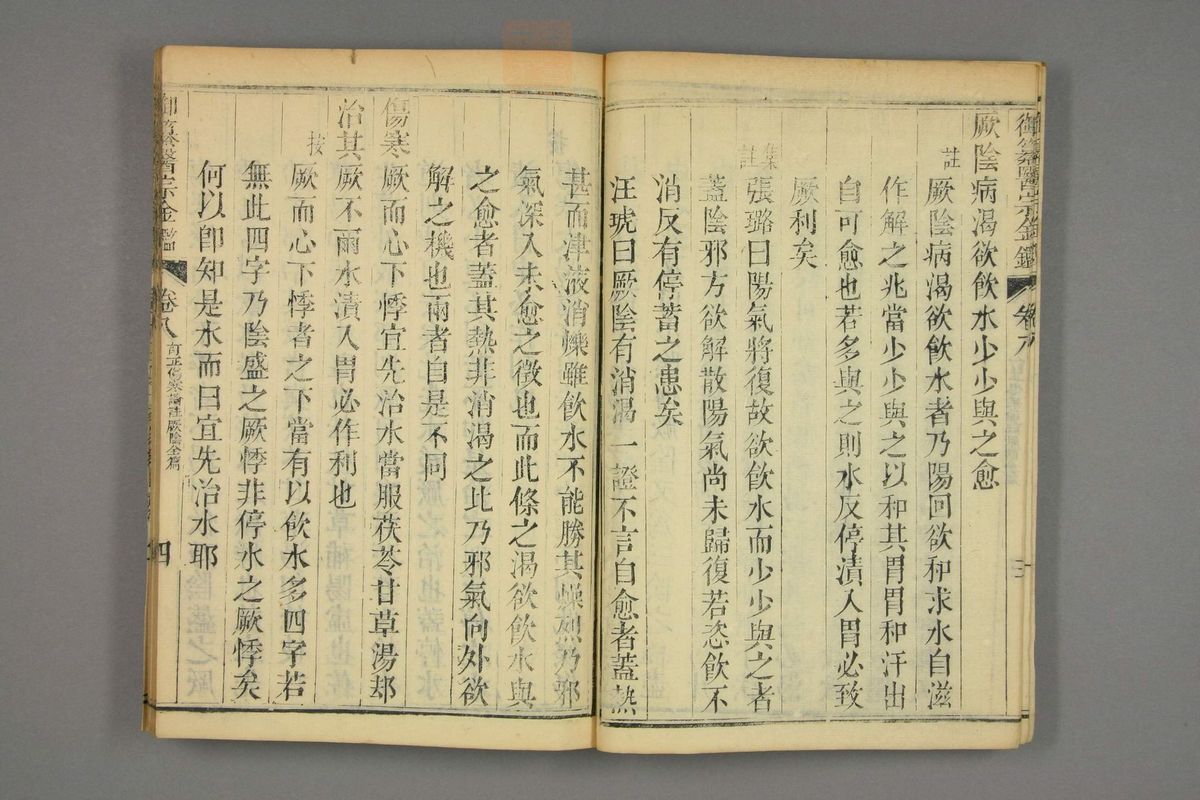 御纂醫宗金鑑
卷八
三
厥陰病渴欲飲水少少與之愈
註
厥陰病渴欲飲水者乃陽回欲和求水自滋
作解之兆當少少與之以和其胃胃和汗出
自可愈也若多與之則水反停漬入胃必致
厥利矣
集註
張璐曰陽氣將復故欲飲水而少少與之者
蓋陰邪方欲解散陽氣尚未歸復若恣飲不
消反有停蓄之患矣
汪琥曰厥陰有消渴一證不言自愈者蓋熱
甚而津液消爍雖飲水不能勝其燥烈乃邪
氣深入未愈之徵也而此條之渴欲飲水與
之愈者蓋其熱非消渴之比乃邪氣向外欲
解之機也兩者自是不同
傷寒厥而心下悸宜先治水當服茯苓甘草湯却
治其厥不爾水漬入胃必作利也
按
厥而心下悸者之下當有以飲水多四字若
無此四字乃陰盛之厥悸非停水之厥悸矣
何以卽知是水而曰宜先治水耶
御纂醫宗金鑑
卷八
訂正傷寒論註厥陰全篇
四